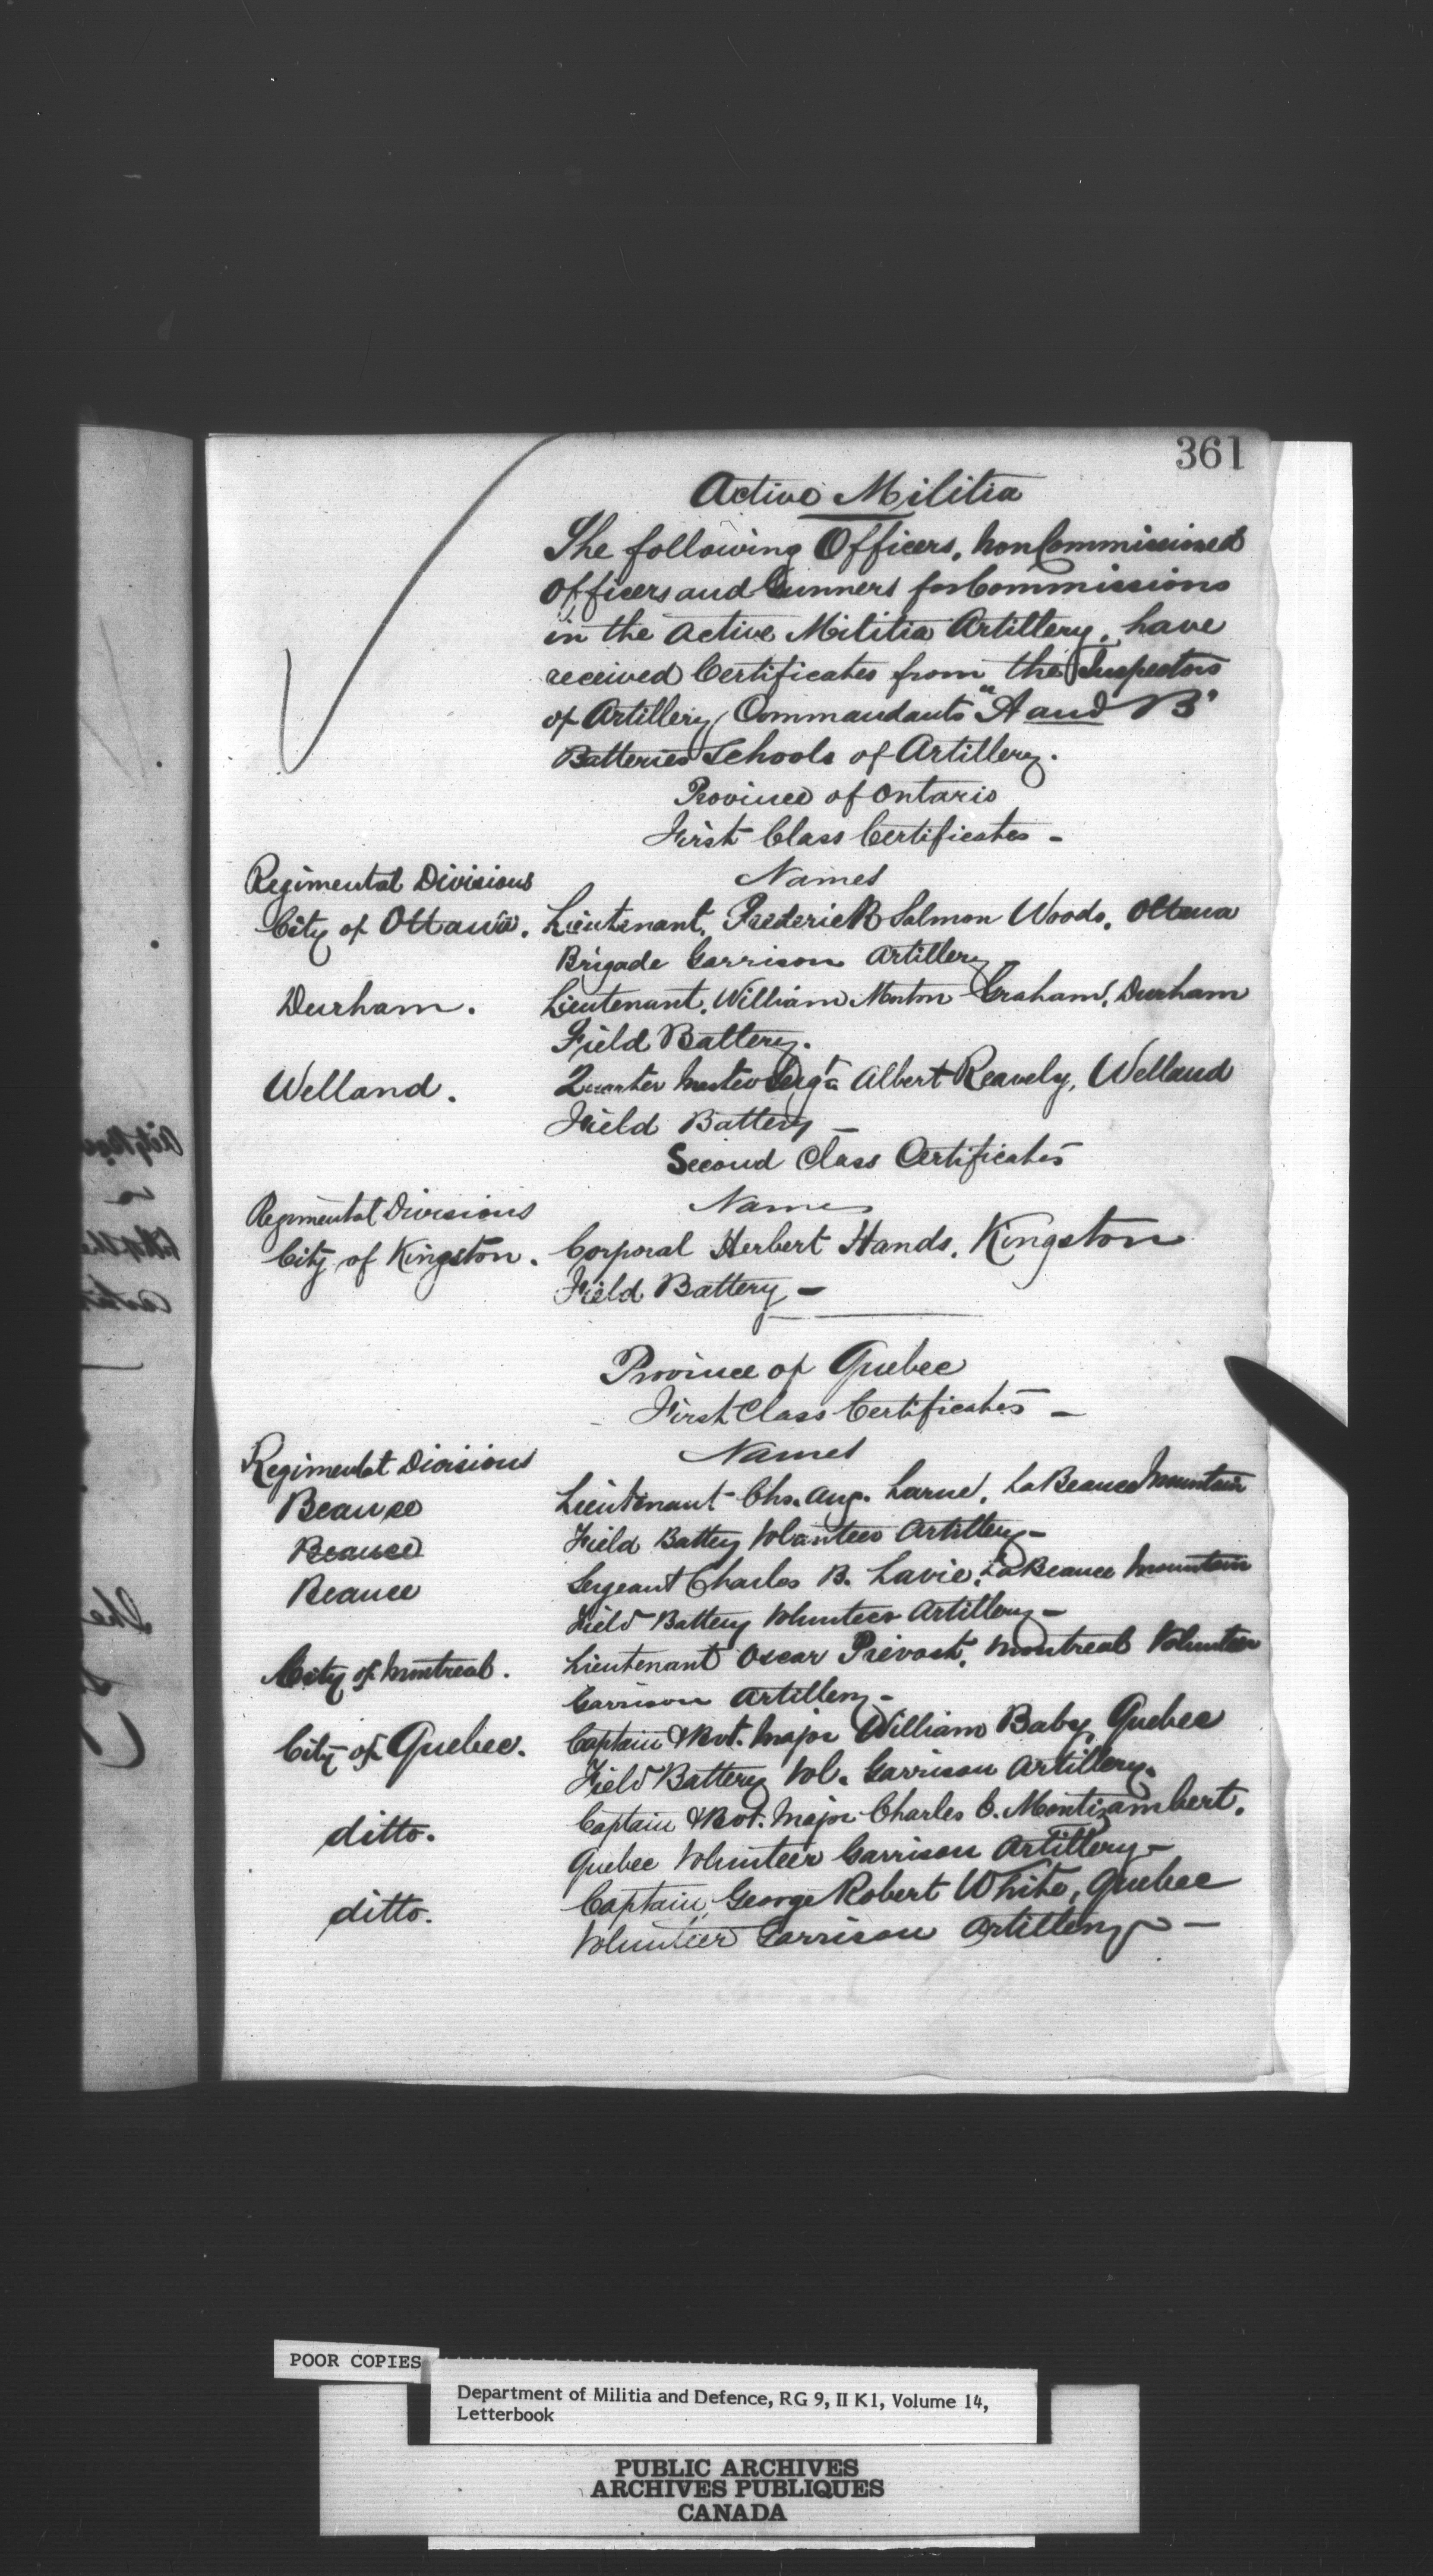 361
Active Militia
The following Officers, Non Commissioned
Officers and Gunners for Commissions
in the Active Militia Artillery, have
received Certificates from the Inspectors
of Artillery, Commandants "A and B"
Batteries Schools of Artillery.
Province of Ontario
First Class Certificates -
Regimental Divisions Names
City of Ottawa. Lieutenant, Frederick Salmon Woods, Ottawa
Brigade Garrison Artillery
Durham. Lieutenant, William Morton Graham, Durham
Field Battery.
Welland. Quarter Master Sergt. Albert Reavely, Welland
Field Battery -
Second Class Certificates
Regimental Divisions Names
City of Kingston. Corporal Herbert Hands, Kingston
Field Battery -
Province of Quebec
First Class Certificates -
Regimental Divisions Names
Beauce Lieutenant Chs. Aug. Larue, La Beauce Mountain
Beauce Field Battey Volanteer Artillery -
Beauce Sergeant Charles B. Lavie, La Beauce Mountain
Field Battery Volunteer Artillery -
City of Montreal. Lieutenant Oscar Prévost, Montreal Volunteer
Garrison Artillery -
City of Quebec. Captain & Bvt. Major William Baby Quebec
Field Battery Vol. Garrison Artillery.
ditto. Captain & Bvt. Major Charles E. Montizambert,
Quebec Volunteer Garrison Artillery -
ditto. Captain, George Robert White, Quebec
Volunteer Garrison Artillery -
POOR COPIES
Department of Militia and Defence, RG 9, II K1, Volume 14,
Letterbook
PUBLIC ARCHIVES
ARCHIVES PUBLIQUES
CANADA